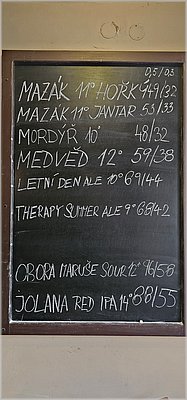 0,5/0,3
MAZÁK 11° HOŘKÝ 49/32
MAZÁK 11° JANTAR 53/33
MORDÝŘ 10° 48/32
MEDVĚD 12° 59/38
LETNÍ DEN ALE 10° 69/44
THERAPY SUMMER ALE 9° 68/42
OBORA MARUŠE SOUR 12° 96/58
JOLANA RED IPA 14° 88/55